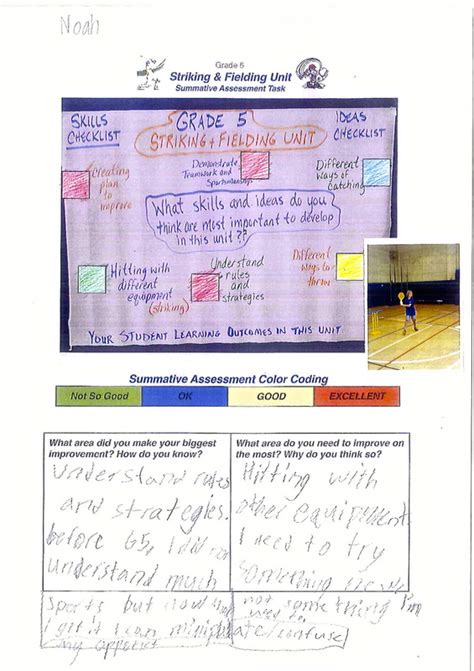 Noah
Grade 5
Striking & Fielding Unit
Summative Assessment Task
SKILLS
CHECKLIST
GRADE 5
STRIKING + FIELDING UNIT
IDEAS
CHECKLIST
Creating
plan to
improve
Demonstrate
Teamwork and
Sportsmanship
Different
Ways of
Catching
What skills and ideas do you
think are most important to develop
in this unit??
Hitting with
different
equipment
(striking)
Understand
rules
and
strategies
Different
ways to
throw
YOUR STUDENT LEARNING OUTCOMES IN THIS UNIT
Summative Assessment Color Coding
Not So Good OK GOOD EXCELLENT
What area did you make your biggest
improvement? How do you know?
understand rules
and strategies.
before G5, I did not
understand much
sports but now
I get it I can
my
What area do you need to improve on
the most? Why do you think so?
Hitting with
other equipments
I need to try
something
not something I'm
used to